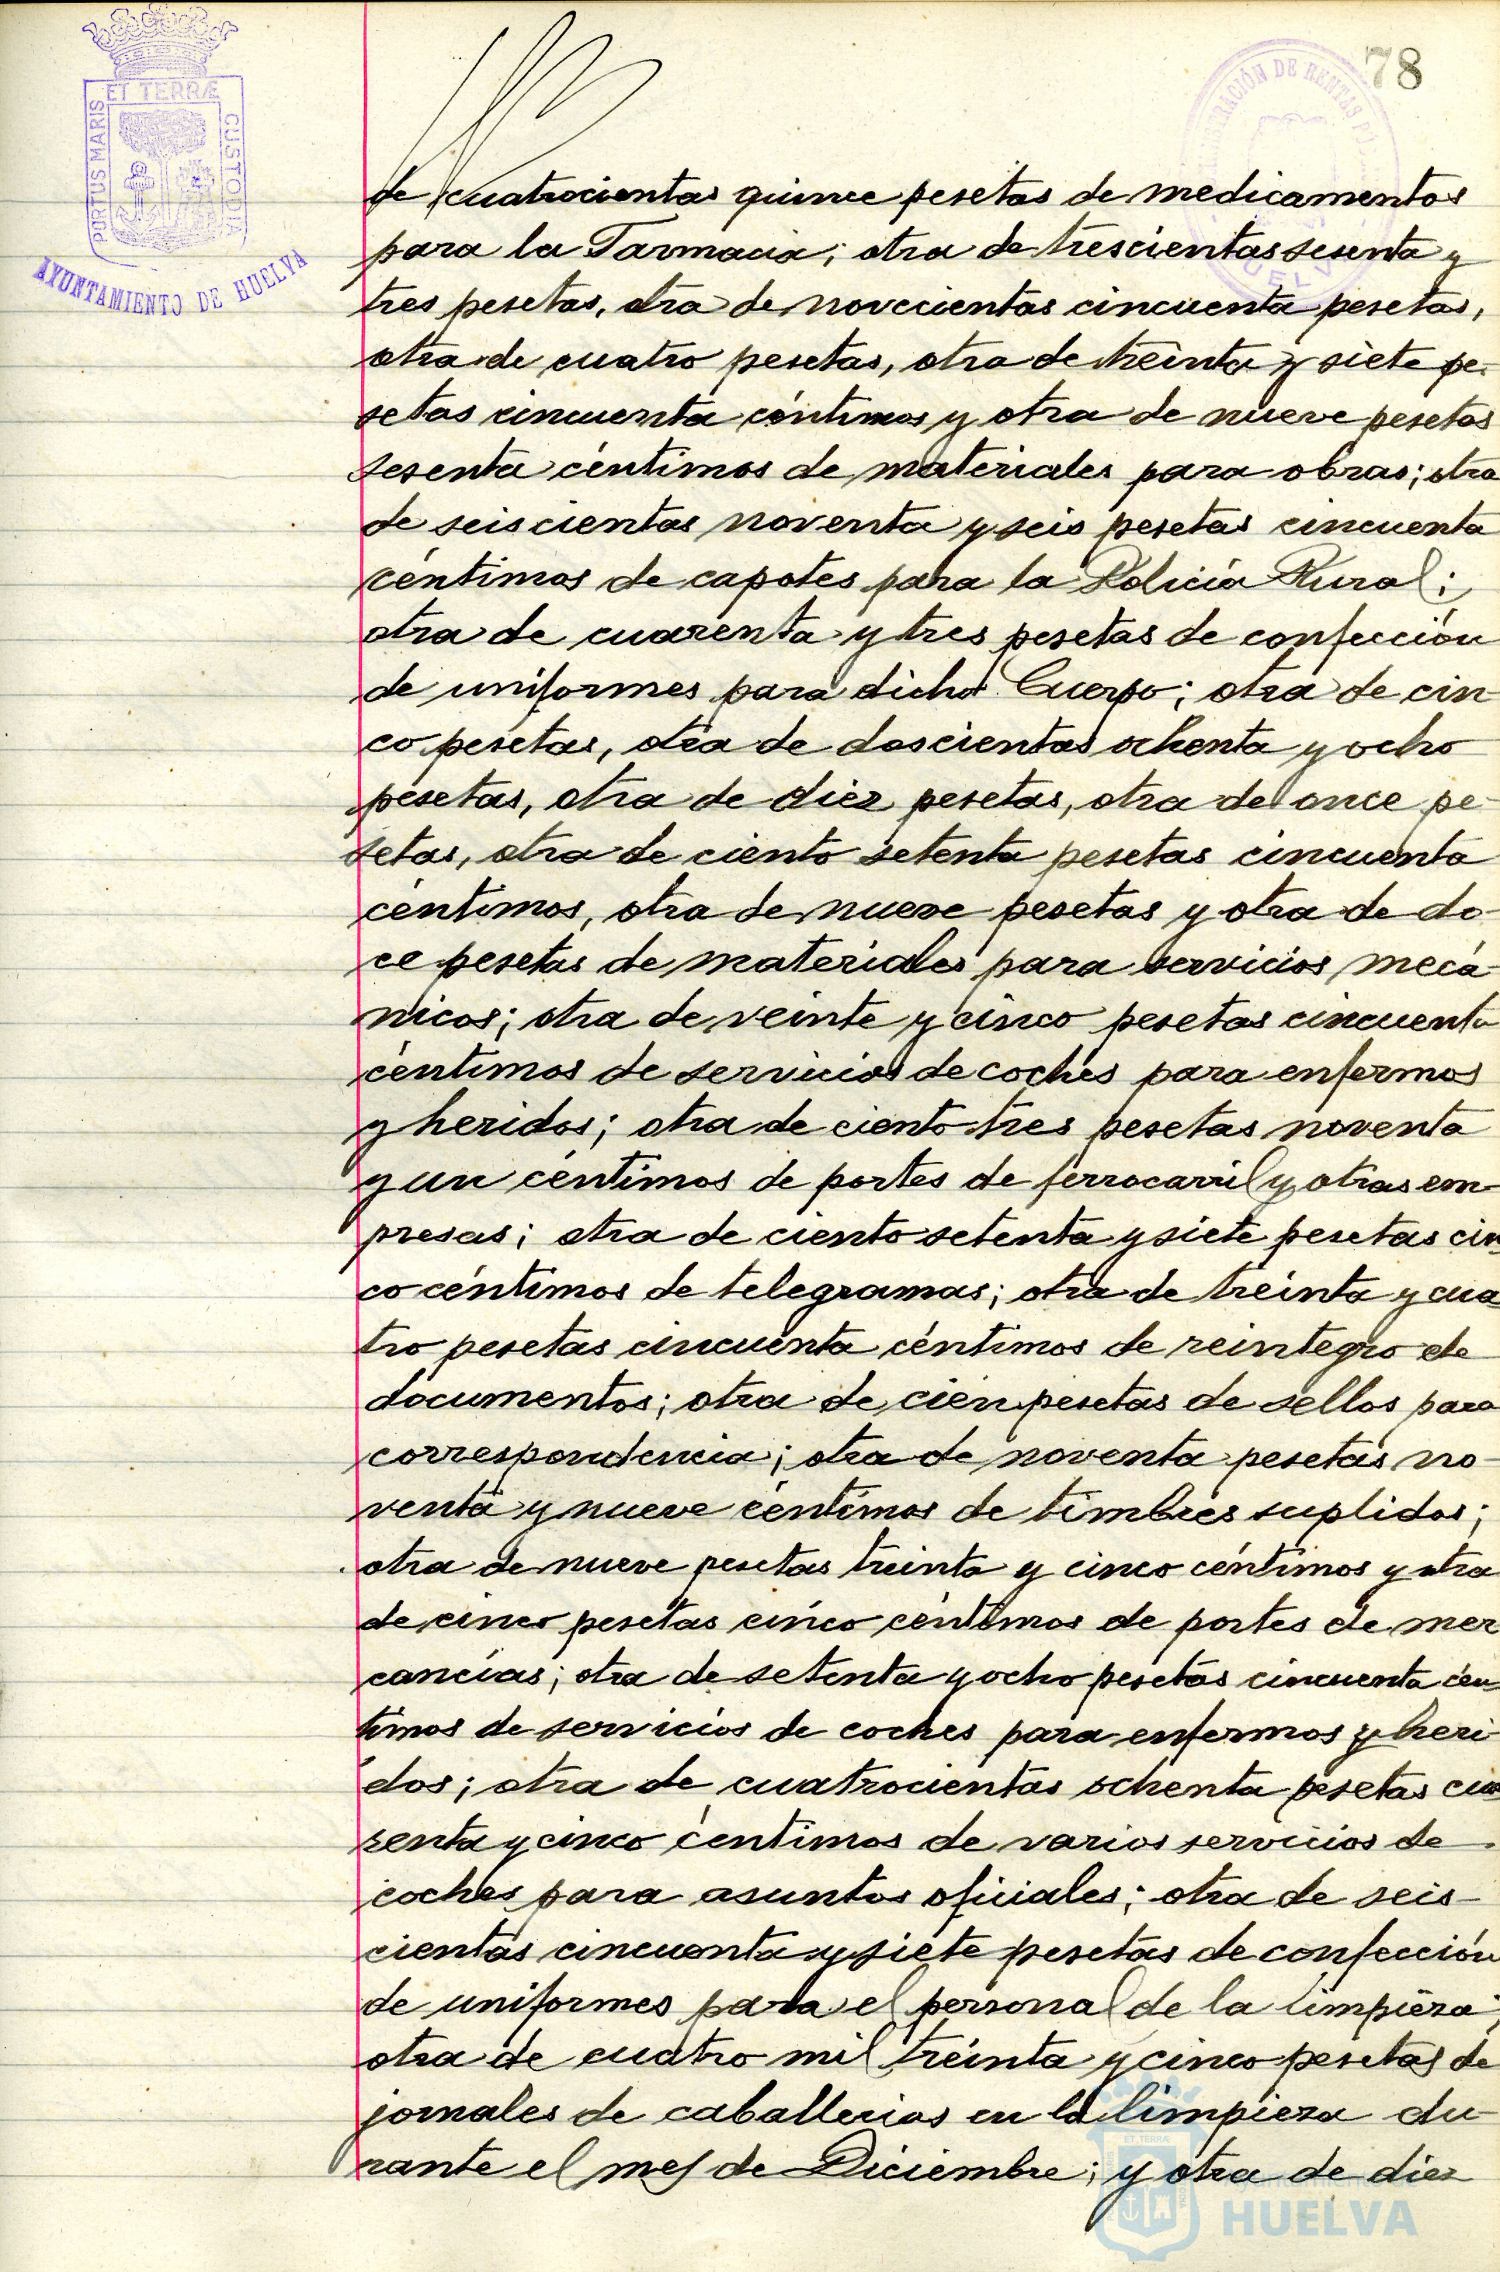 78
ET TERRÆ
PORTUS MARIS
CUSTODIA
AYUNTAMIENTO DE HUELVA
de cuatrocientas quince pesetas de medicamentos
para la Farmacia; otra de trescientas sesenta y
tres pesetas, otra de novecientas cincuenta pesetas,
otra de cuatro pesetas, otra de treinta y siete pe-
setas cincuenta céntimos y otra de nueve pesetas
sesenta céntimos de materiales para obras; otra
de seiscientas noventa y seis pesetas cincuenta
céntimos de capotes para la Policía Rural;
otra de cuarenta y tres pesetas de confección
de uniformes para dicho Cuerpo; otra de cin-
co pesetas, otra de doscientas ochenta y ocho
pesetas, otra de diez pesetas, otra de once pe-
setas, otra de ciento setenta pesetas cincuenta
céntimos, otra de nueve pesetas y otra de do-
ce pesetas de materiales para servicios mecá-
nicos; otra de veinte y cinco pesetas cincuenta
céntimos de servicios de coches para enfermos
y heridos; otra de ciento tres pesetas noventa
y un céntimos de portes de ferrocarril y otras em-
presas; otra de ciento setenta y siete pesetas cin-
co céntimos de telegramas; otra de treinta y cua
tro pesetas cincuenta céntimos de reintegro de
documentos; otra de cien pesetas de sellos para
correspondencia; otra de noventa pesetas no-
venta y nueve céntimos de timbres suplidos;
otra de nueve pesetas treinta y cinco céntimos y otra
de cinco pesetas cinco céntimos de portes de mer
cancías; otra de setenta y ocho pesetas cincuenta cén-
timos de servicios de coches para enfermos y heri-
dos; otra de cuatrocientas ochenta pesetas cua
renta y cinco céntimos de varios servicios de
coches para asuntos oficiales; otra de seis-
cientas cincuenta y siete pesetas de confección
de uniformes para el personal de la limpieza;
otra de cuatro mil treinta y cinco pesetas de
jornales de caballerias en la limpieza du-
rante el mes de Diciembre; y otra de diez
Ayuntamiento de
HUELVA